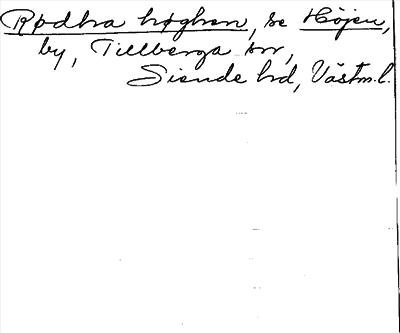 Rødha høghen, se Höjen,
by, Tillberga sn,
Siende hd, Västm.l.